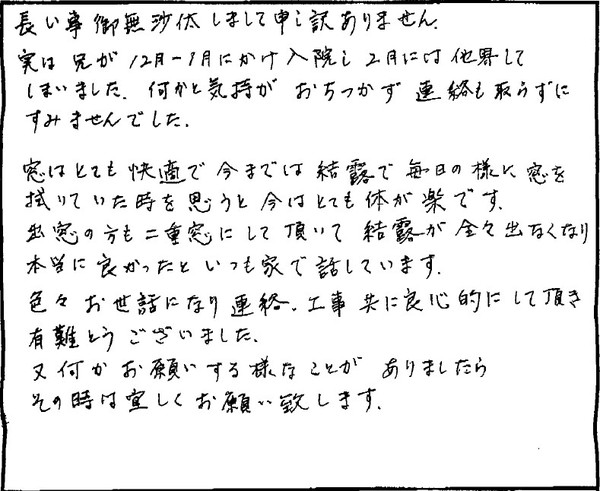 長い事御無沙伏しまして申し訳ありません.
実は兄が12月-1月にかけ入院し2月には他界して
しまいました. 何かと気持が おちつかず 連絡も取らずに
すみませんでした.
窓はとても快適で今までは結露で毎日の様に窓を
拭いていた時を思うと今はとても体が楽です.
出窓の方も二重窓にして頂いて 結露が全々出なくなり
本当に良かったといつも家で話しています.
色々お世話になり連絡、工事共に良心的にして頂き
有難とうございました.
又何かお願いする様なことが ありましたら
その時は宜しくお願い致します.